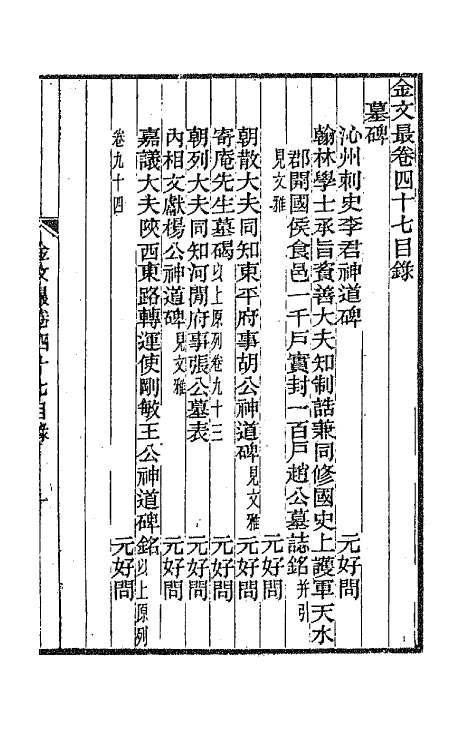 金文最卷四十七目錄
墓碑
沁州刺史李君神道碑 元好問
翰林學士承旨資善大夫知制誥兼同修國史上護軍天水
郡開國侯食邑一千戶實封一百戶趙公墓誌銘并引
見文雅 元好問
朝散大夫同知東平府事胡公神道碑見文雅 元好問
寄庵先生墓碣以上原列卷九十三 元好問
朝列大夫同知河間府事張公墓表 元好問
內相文獻楊公神道碑見文雅 元好問
嘉議大夫陝西東路轉運使剛敏王公神道碑銘以上原列
卷九十四 元好問
金文最卷四十七目錄 一